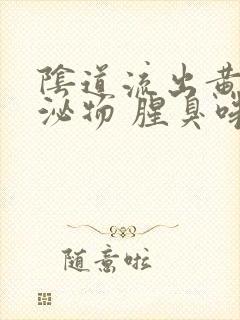 陰道流出黃
泌物 腥臭味
隨意啦